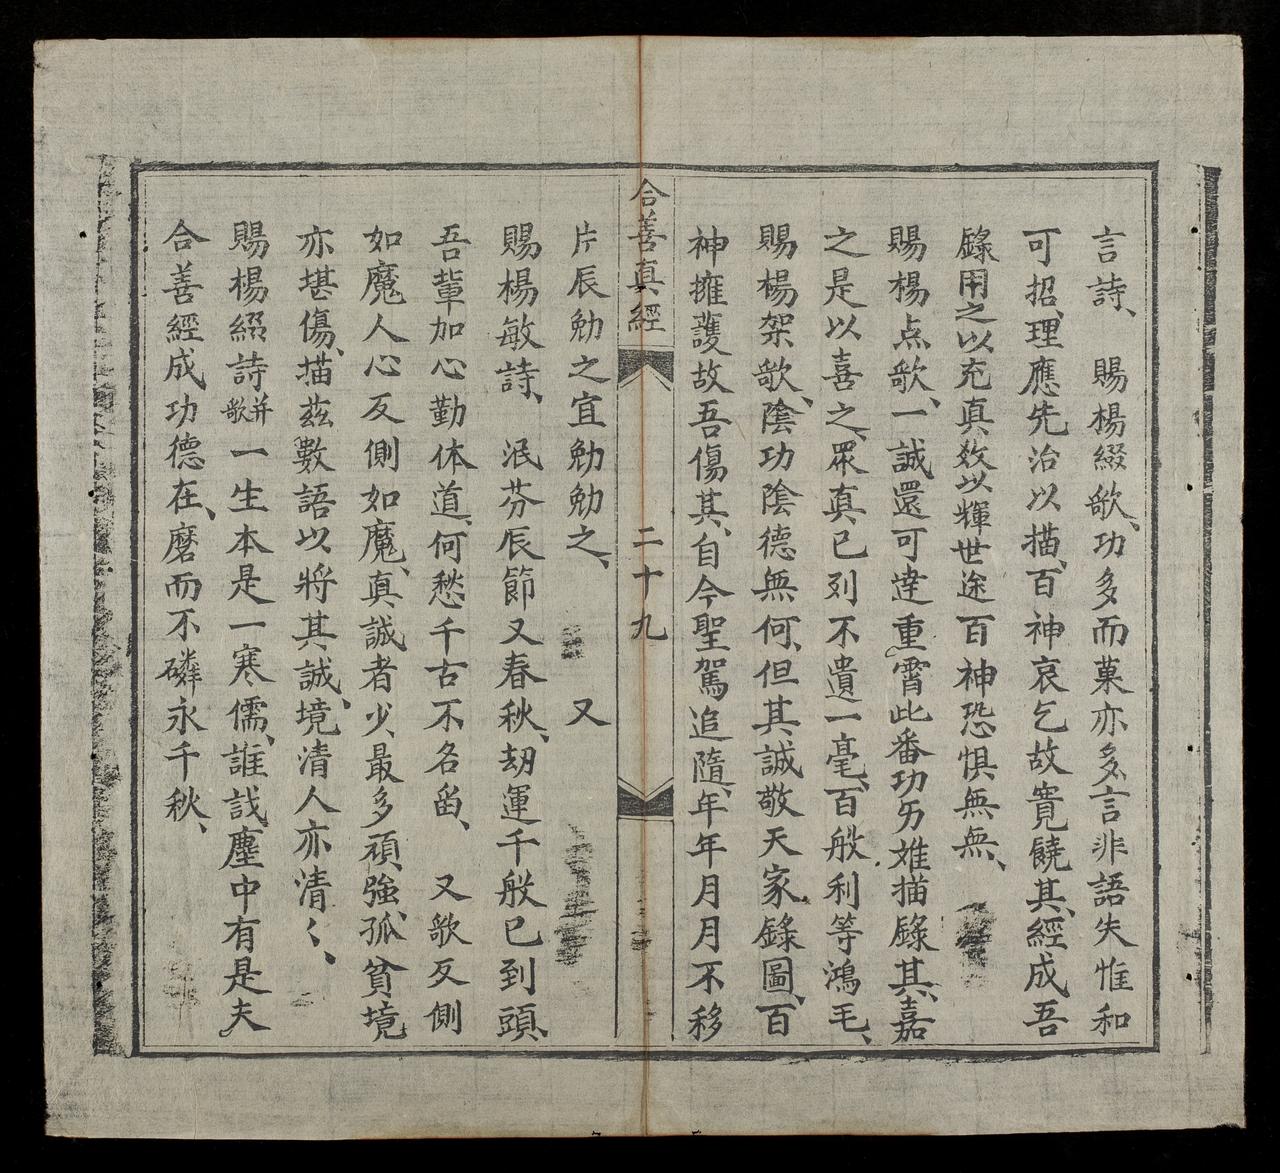 言詩、　賜楊綴歌、功多而菓亦多、言非語失惟和
可招、理應先治以描、百神哀乞故寬饒其、經成吾
錄用之以充真、效以輝世途百神恐惧無無、
賜楊点歌、一誠還可達重霄此番功另难描錄其、嘉
之是以喜之、眾真已列不遺一毫、百般利等鴻毛、
賜楊架歌、陰功陰德無何、但其誠敬天家錄圖、百
神擁護故吾傷其、自今聖駕追隨、年年月月不移
合善真經　二十九
片辰勉之宜勉勉之、　又
賜楊敏詩、　泯芬辰節又春秋、劫運千般已到頭、
吾輩加心勤体道、何愁千古不名畱、　又歌反側
如魔人心反側如魔、真誠者少、最多頑強、孤貧境
亦堪傷、描茲數語以將其誠、境清人亦清〻、
賜楊綴詩并歌一生本是一寒儒、誰哉塵中有是夫
合善經成功德在、磨而不磷永千秋、